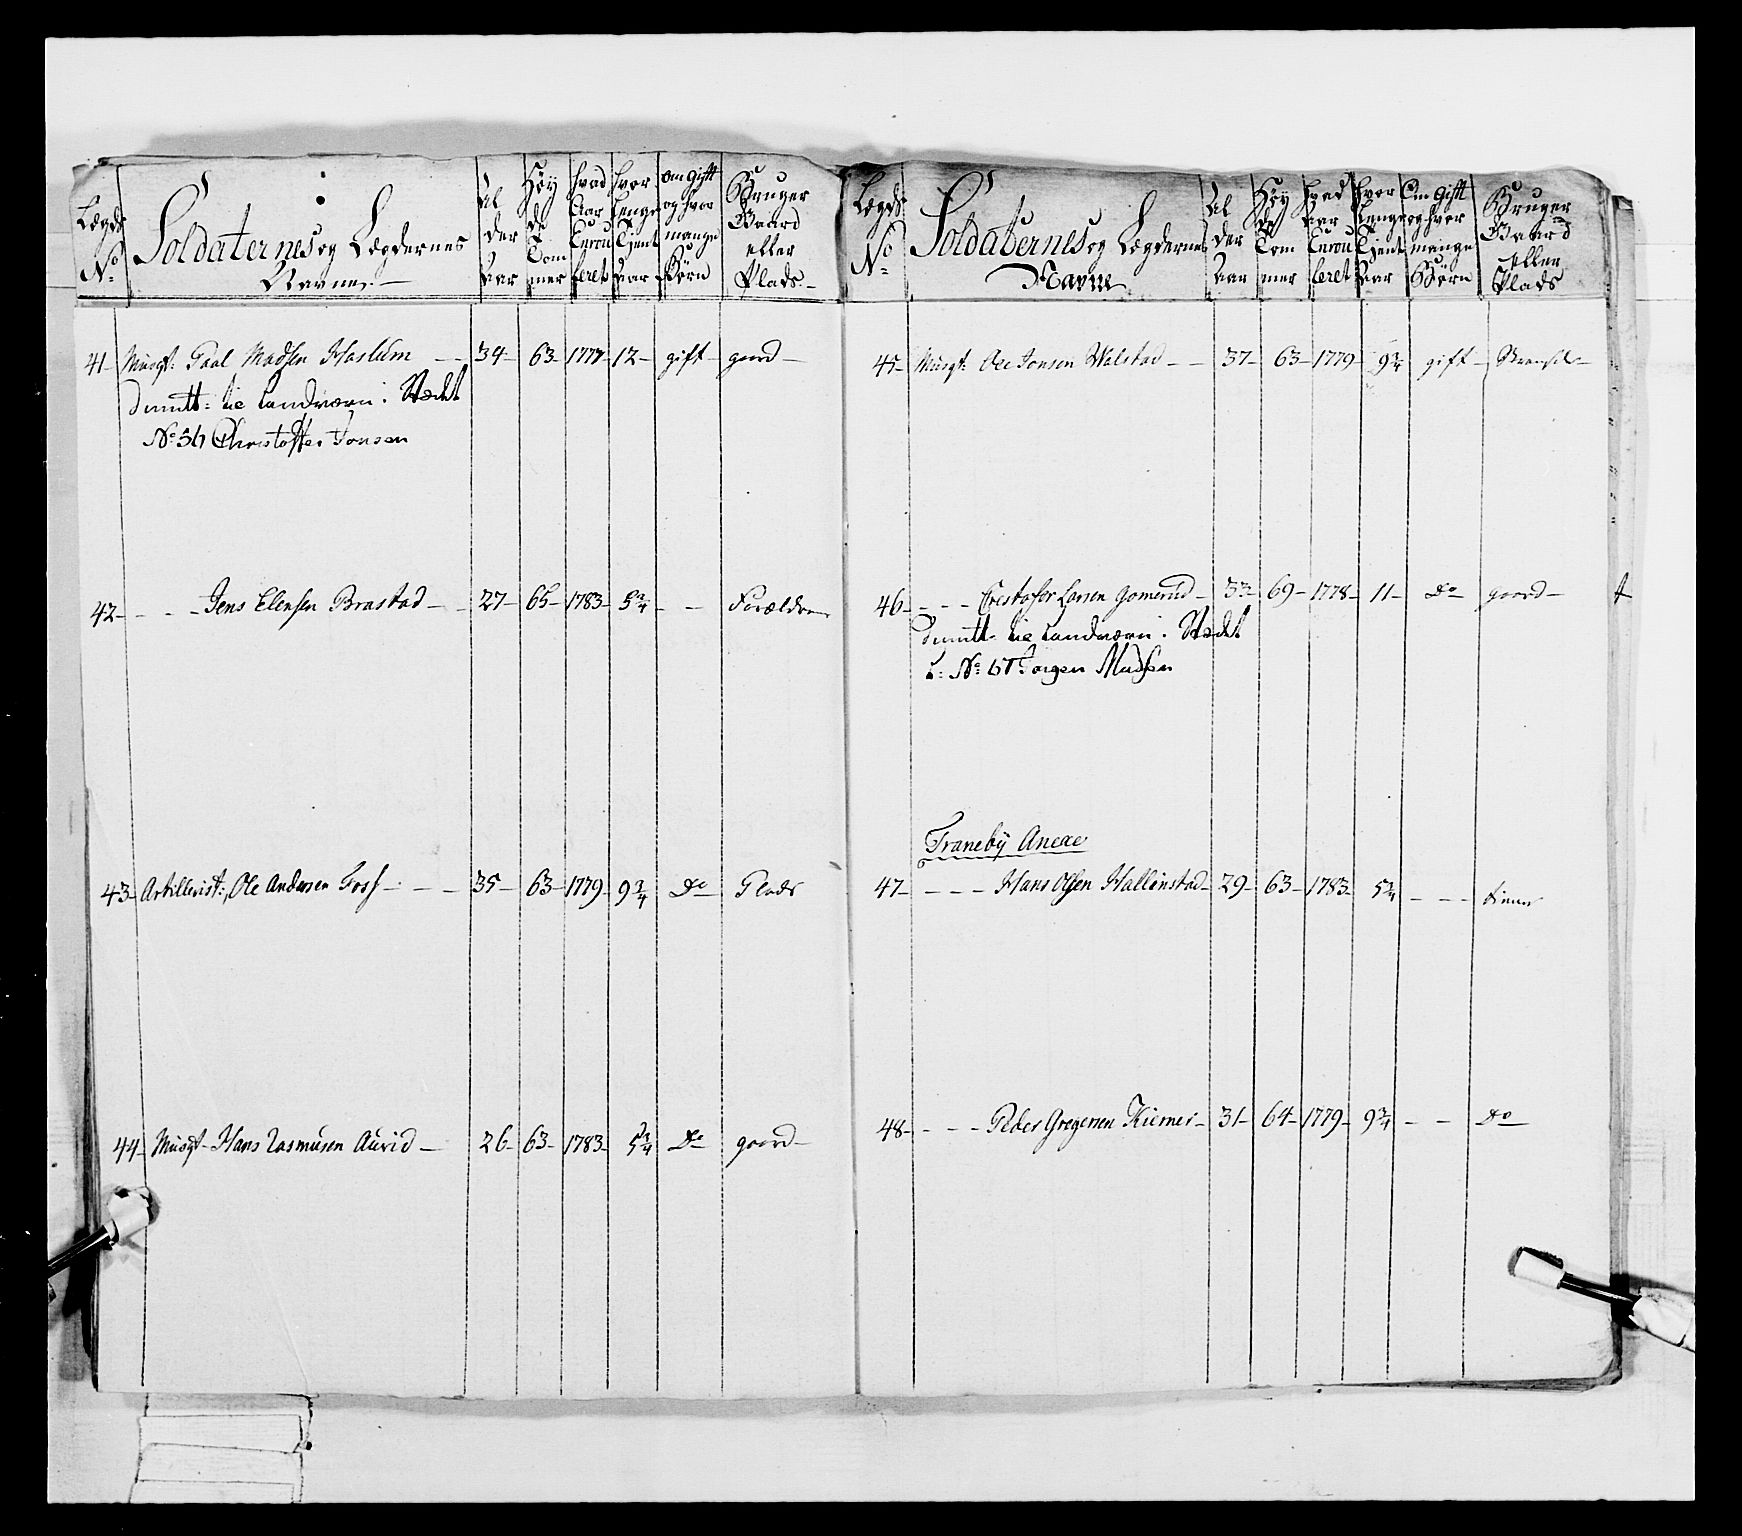 Lægds No
Soldaternes og Lægdernes
Navne.
Al der Aar
Høy de Tom mer
hvad Aar Enrou leret
hvor lenge Tient Aar
om gift og hvor mange Børn
Bruger Gaard eller Plads
41 Musqt: Paal Madsen Haslum 34 63 1777 12 gift gaard
Dimitt: til Landværn: Stedet
No 34 Christoffer Jonsen
42 Jens Elensen Brastad 27 65 1783 5 3/4 Forældre
43 Artillerist: Ole Andersen Foss 35 63 1779 9 3/4 Do Plads
44 Musqt Hans Rasmusen Aurid 26 63 1783 5 3/4 Do gaard
Lægds No
Soldaternes og Lægdernes
Navne
Al der Aar
Høy de Tom mer
hvad Aar Enrou leret
hvor lenge Tient Aar
Om gift og hvor mange Børn
Bruger Gaard eller Plads
45 Musqt: Ole Jonsen Walstad 37 63 1779 9 3/4 gift
46 Crestofer Larsen Gomerud 33 69 1778 11 Do gaard
Dimitt til Landværn: Stedet
L: No 67 Jørgen Madsen
Traneby Anexe
47 Hans Olsen Hallenstad 29 63 1783 5 3/4 tiener
48 Peder Gregersen Kiernes 31 64 1779 9 3/4 Do